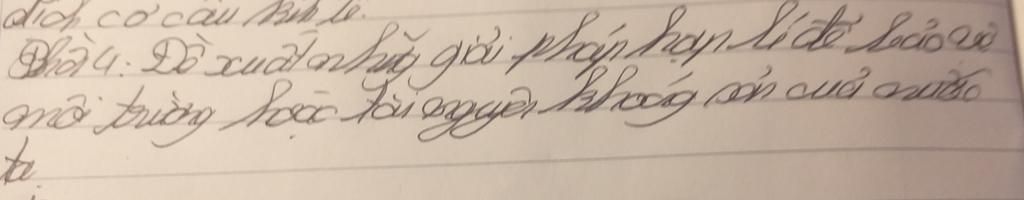 dịch cơ cấu kinh tế.
Bài 4: Đề xuất những giải pháp hợp lí để bảo vệ
môi trường hoặc tài nguyên khoáng sản của nước
ta.